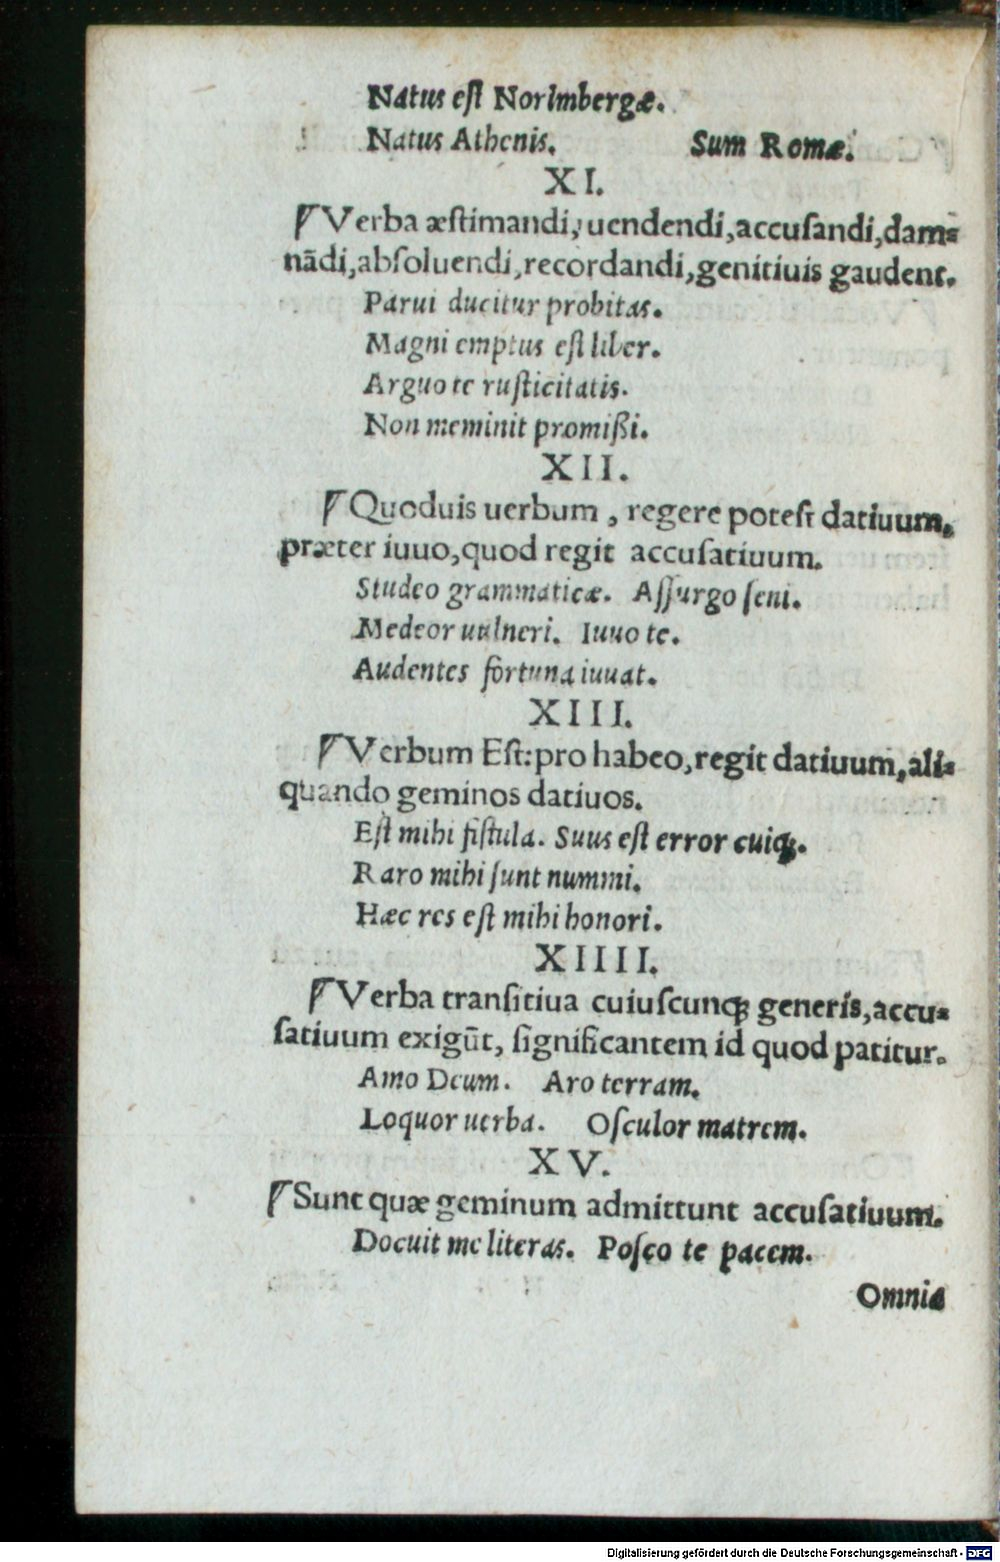 Natus eſt Norimbergæ.
Natus Athenis. Sum Romæ.
XI.
Verba æſtimandi, uendendi, accuſandi, dam⸗
nādi, abſoluendi, recordandi, genitiuis gaudent.
Parui ducitur probitas.
Magni emptus eſt liber.
Arguo te ruſticitatis.
Non meminit promißi.
XII.
Quoduis uerbum, regere poteſt datiuum,
præter iuuo, quod regit accuſatiuum.
Studeo grammaticæ. Aſſurgo ſeni.
Medeor uulneri. Iuuo te.
Audentes fortuna iuuat.
XIII.
Verbum Eſt: pro habeo, regit datiuum, ali⸗
quando geminos datiuos.
Eſt mihi fiſtula. Suus eſt error cuiqꝫ.
Raro mihi ſunt nummi.
Hæc res eſt mihi honori.
XIIII.
Verba tranſitiua cuiuſcunqꝫ generis, accu⸗
ſatiuum exigūt, ſignificantem id quod patitur.
Amo Deum. Aro terram.
Loquor uerba. Oſculor matrem.
XV.
Sunt quæ geminum admittunt accuſatiuum.
Docuit me literas. Poſco te pacem.
Omnia
Digitalisierung gefördert durch die Deutsche Forschungsgemeinschaft - DFG